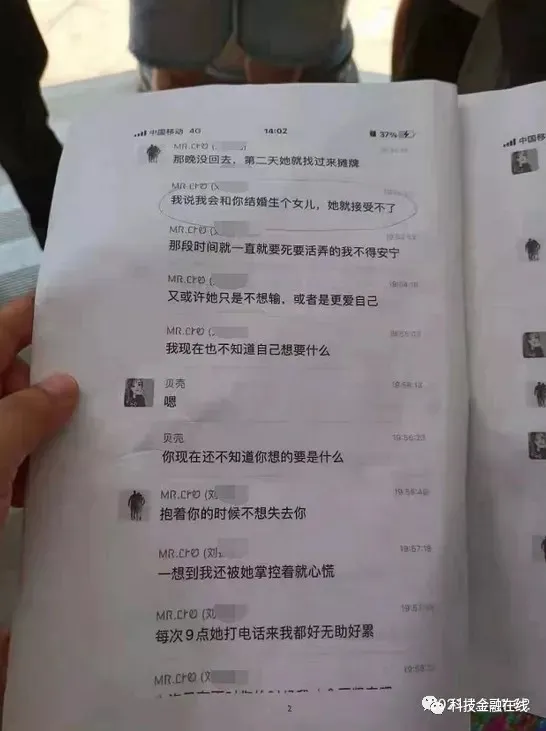 中国移动 4G 14:02 37%
MR.Cro (
那晚没回去，第二天她就找过来摊牌
MR.Cro (
我说我会和你结婚生个女儿，她就接受不了
MR.Cro (
那段时间就一直就要死要活弄的我不得安宁
MR.Cro (
又或许她只是不想输，或者是更爱自己
MR.Cro (
我现在也不知道自己想要什么
贝壳
嗯
贝壳 19:56:23
你现在还不知道你想的要是什么
MR.Cro (刘 19:56:46
抱着你的时候不想失去你
MR.Cro (刘 19:57:18
一想到我还被她掌控着就心慌
MR.Cro (刘
每次9点她打电话来我都好无助好累
MR.Cro (
2
中国移
科技金融在线